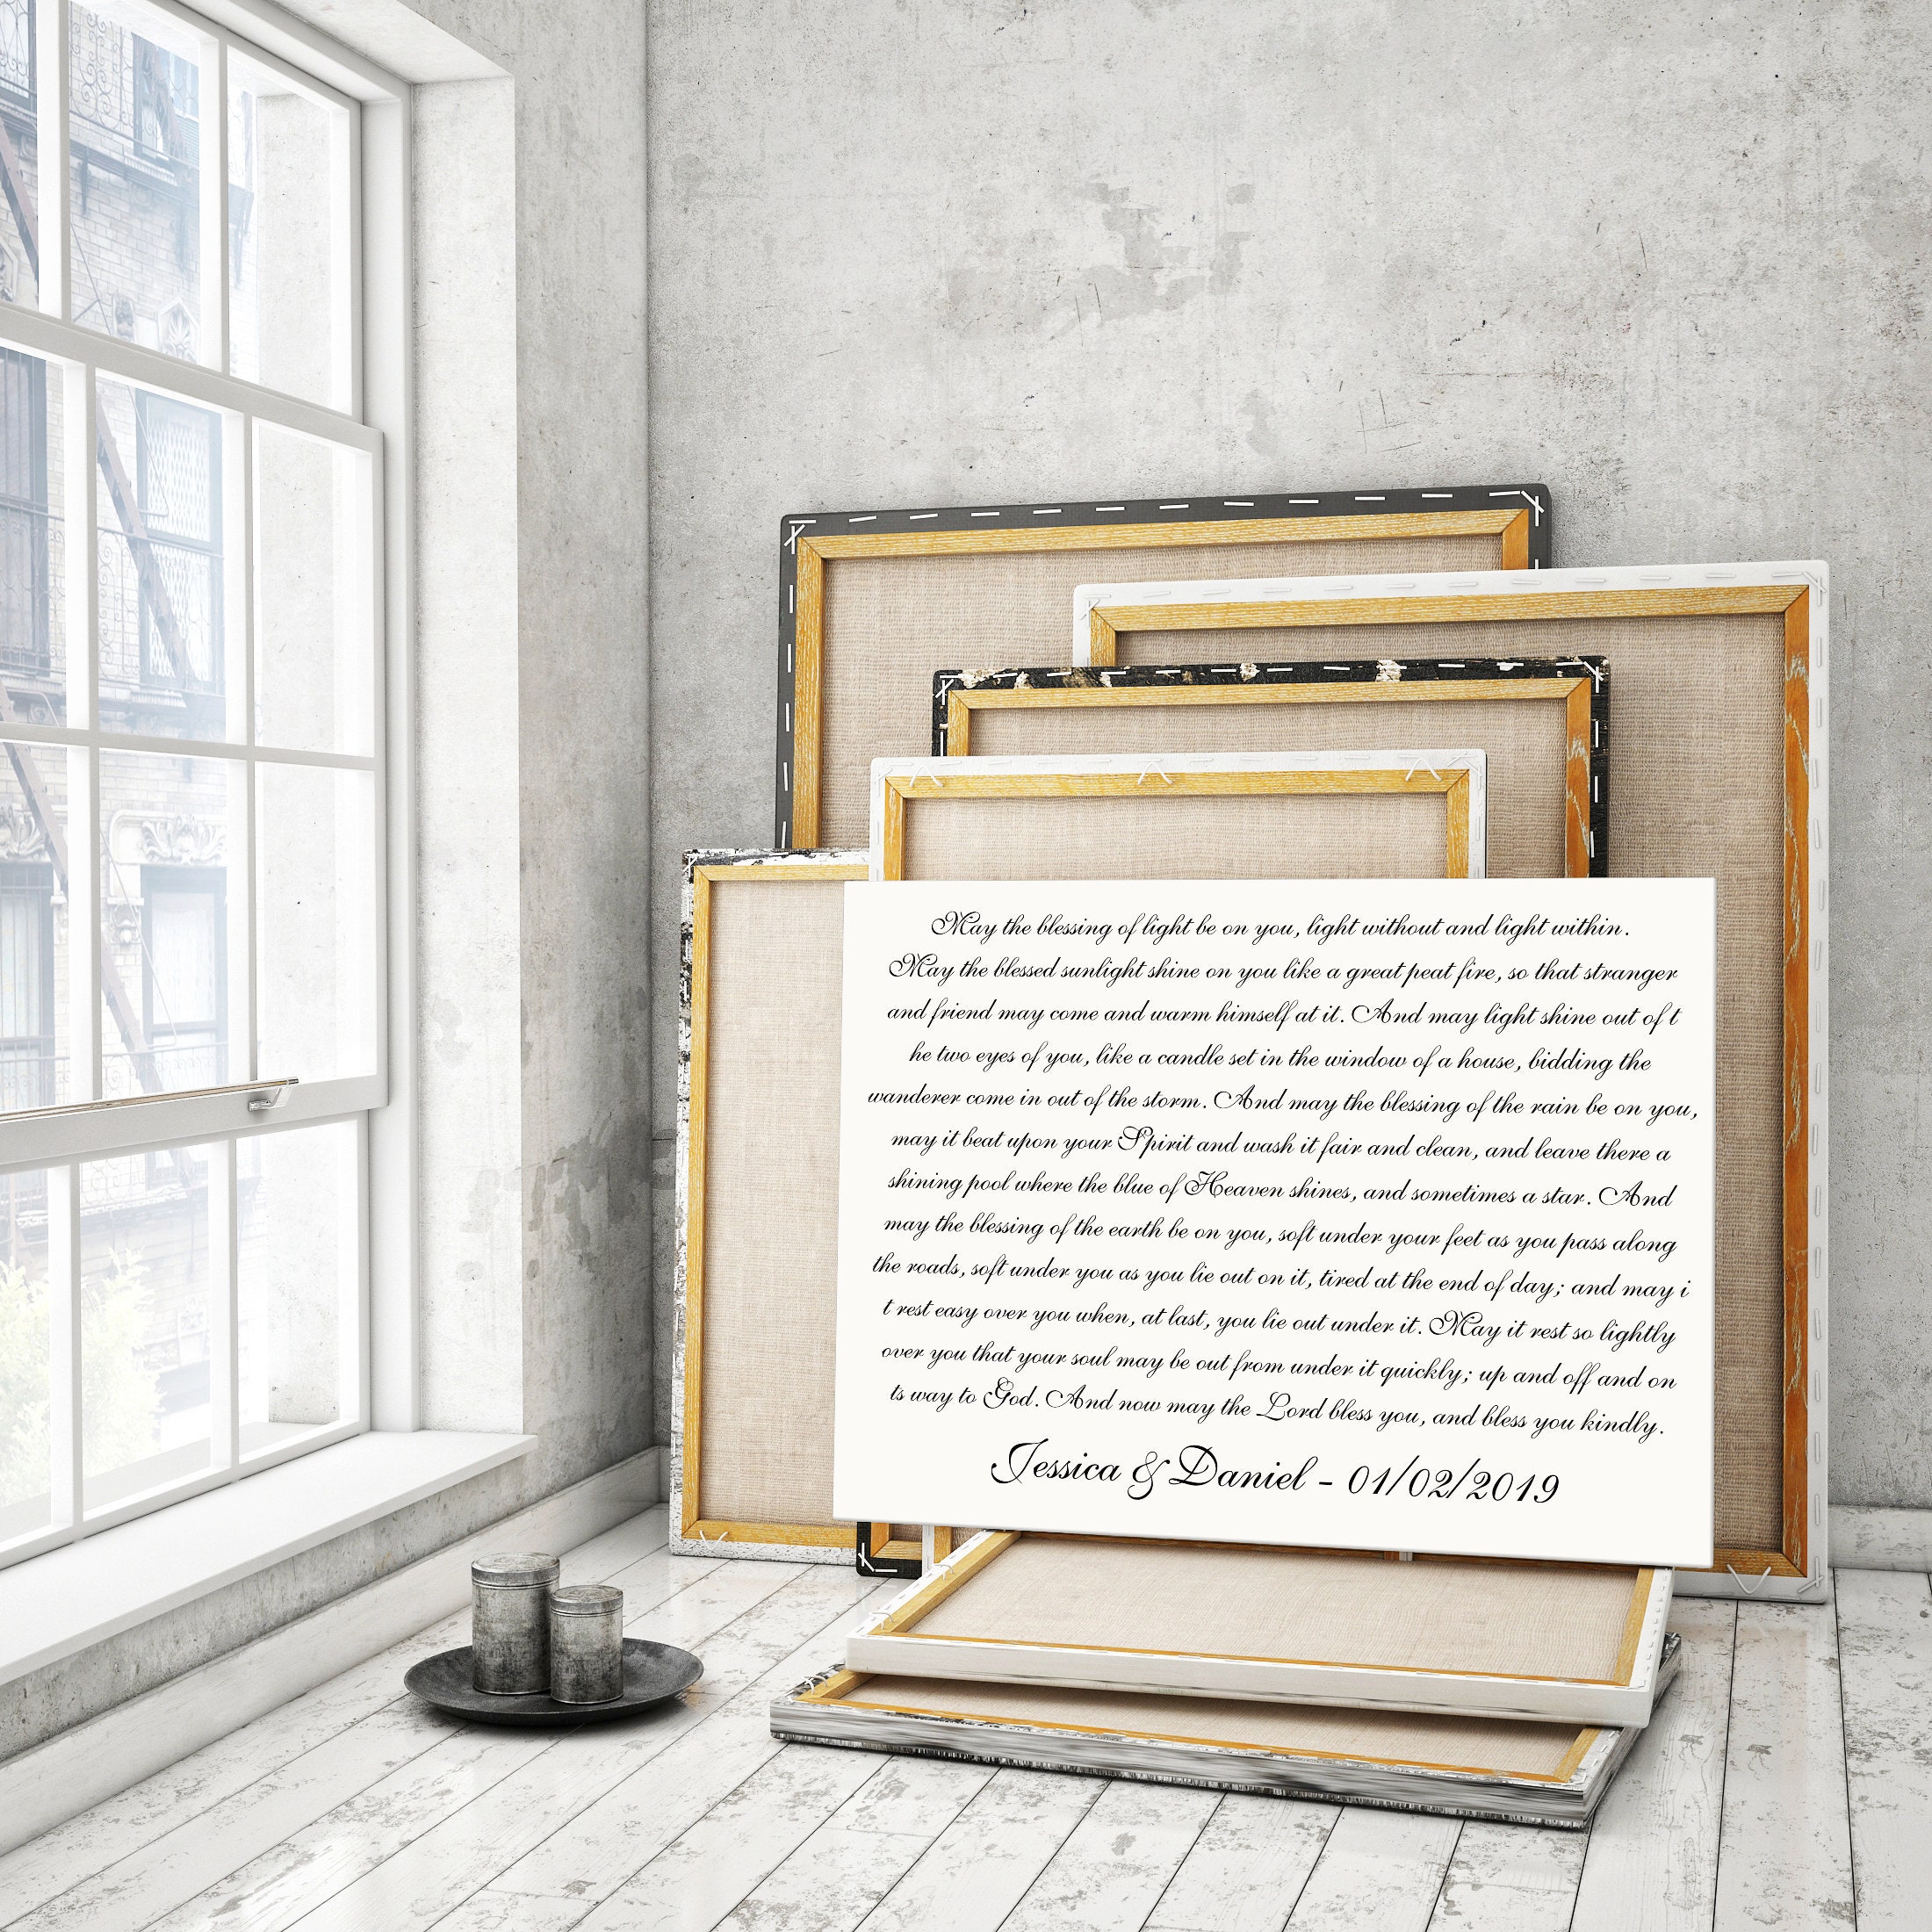 May the blessing of light be on you, light without and light within.
May the blessed sunlight shine on you like a great peat fire, so that stranger
and friend may come and warm himself at it. And may light shine out of t
he two eyes of you, like a candle set in the window of a house, bidding the
wanderer come in out of the storm. And may the blessing of the rain be on you,
may it beat upon your Spirit and wash it fair and clean, and leave there a
shining pool where the blue of Heaven shines, and sometimes a star. And
may the blessing of the earth be on you, soft under your feet as you pass along
the roads, soft under you as you lie out on it, tired at the end of day; and may i
t rest easy over you when, at last, you lie out under it. May it rest so lightly
over you that your soul may be out from under it quickly; up and off and on
ts way to God. And now may the Lord bless you, and bless you kindly.
Jessica & Daniel - 01/02/2019